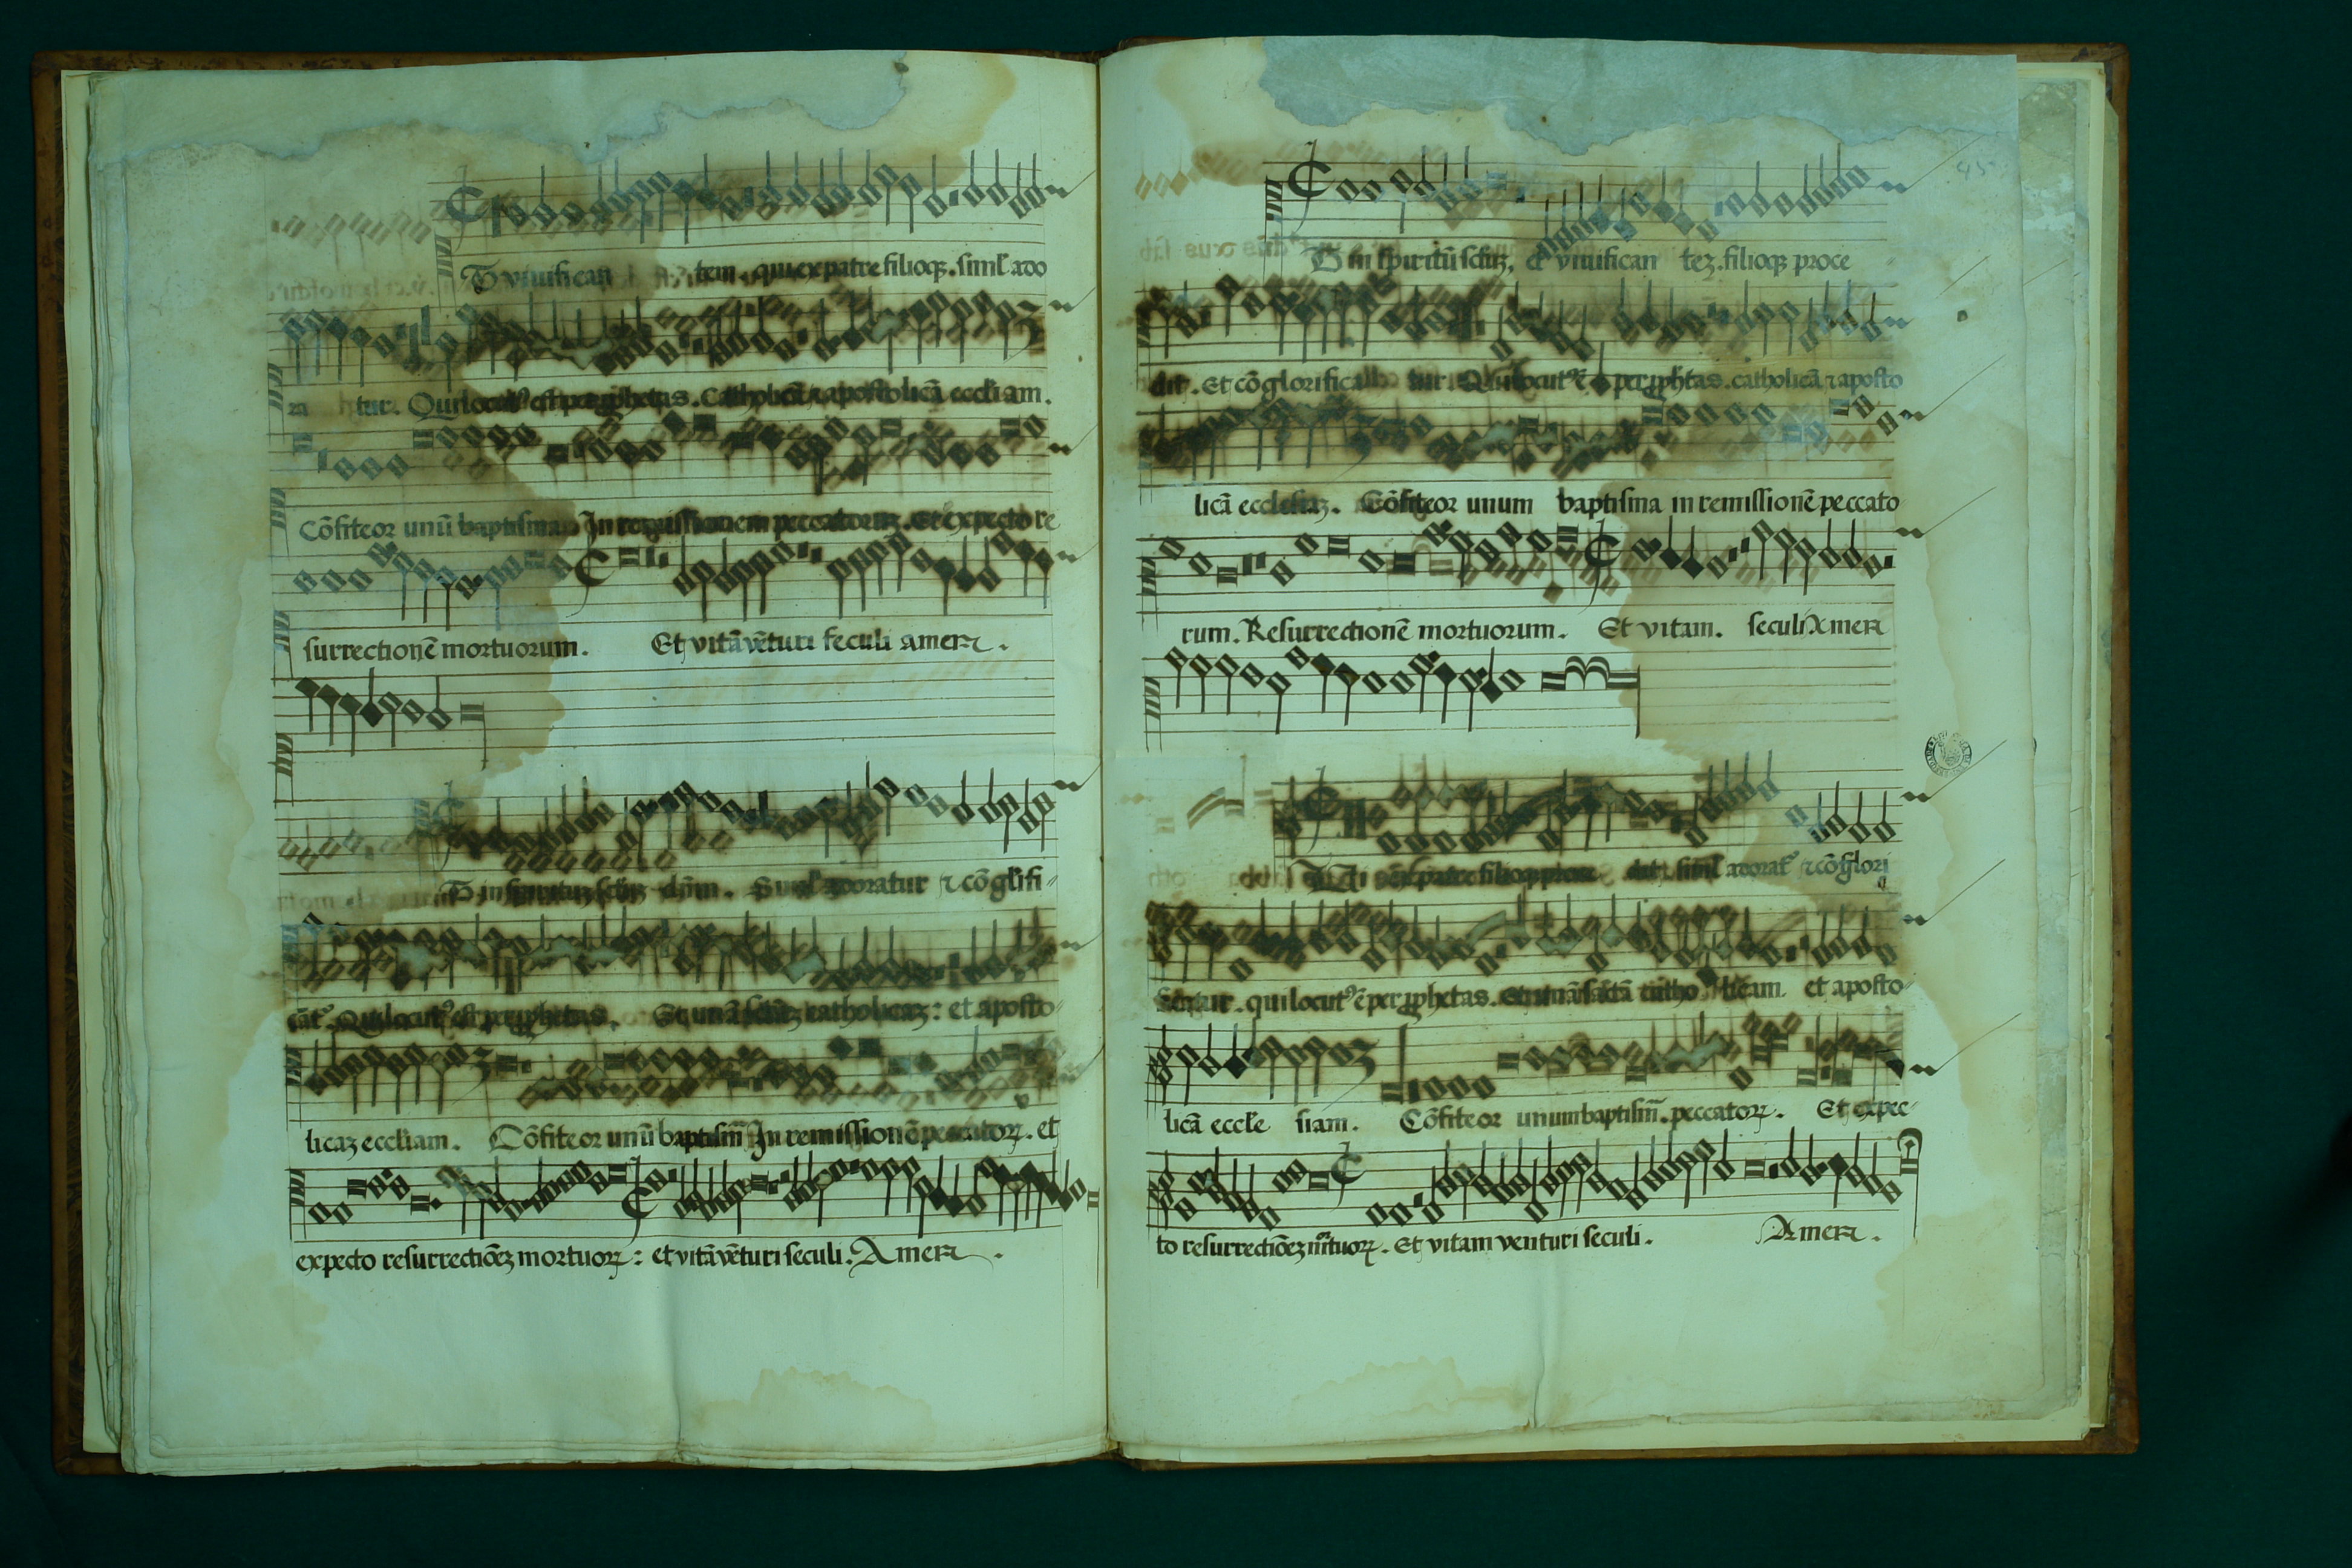 Et vivifican tem. qui ex patre filioqȝ. simĺ ado
ra tur. Qui locutꝰ est per ꝓphetas. Catholicā ⁊ apostolicā eccĺiam.
Cōfiteor unū baptisma. In remissionem peccatorum. Et expecto re
surrectionē mortuorum. Et vitā vēturi seculi amen.
Et in spiritum dn̄m. Simĺ adoratur ⁊ cō gĺifi-
Qui locutꝰ est per ꝓphetas. Et unā catholicaȝ: et aposto-
licaȝ eccĺiam. Cōfiteor unū baptism̄ In remissionē peccatorꝝ. et
expecto resurrectiōeȝ mortuorꝝ: et vitā vēturi seculi. Amen.
45
Et in spiritū sctūȝ, & vivifican teȝ. filioqȝ proce
dit. Et cō glorifica tur. Qui locutꝰ ē per ꝓphetas. catholicā ⁊ aposto
licā ecclesiaȝ. Cōfiteor unum baptisma in remissionē peccato
rum. Resurrectionē mortuorum. Et vitam. seculi Amen
ex patre filioqȝ proce dit. simĺ adoratꝰ ⁊ cō glori
qui locutꝰ ē per ꝓphetas. Et unā sāctā catho licam et aposto-
licā eccle siam. Cōfiteor unum baptism̄. peccatorꝝ. Et expec-
to resurrectiōeȝ mr̄tuorꝝ. Et vitam venturi seculi. Amen.